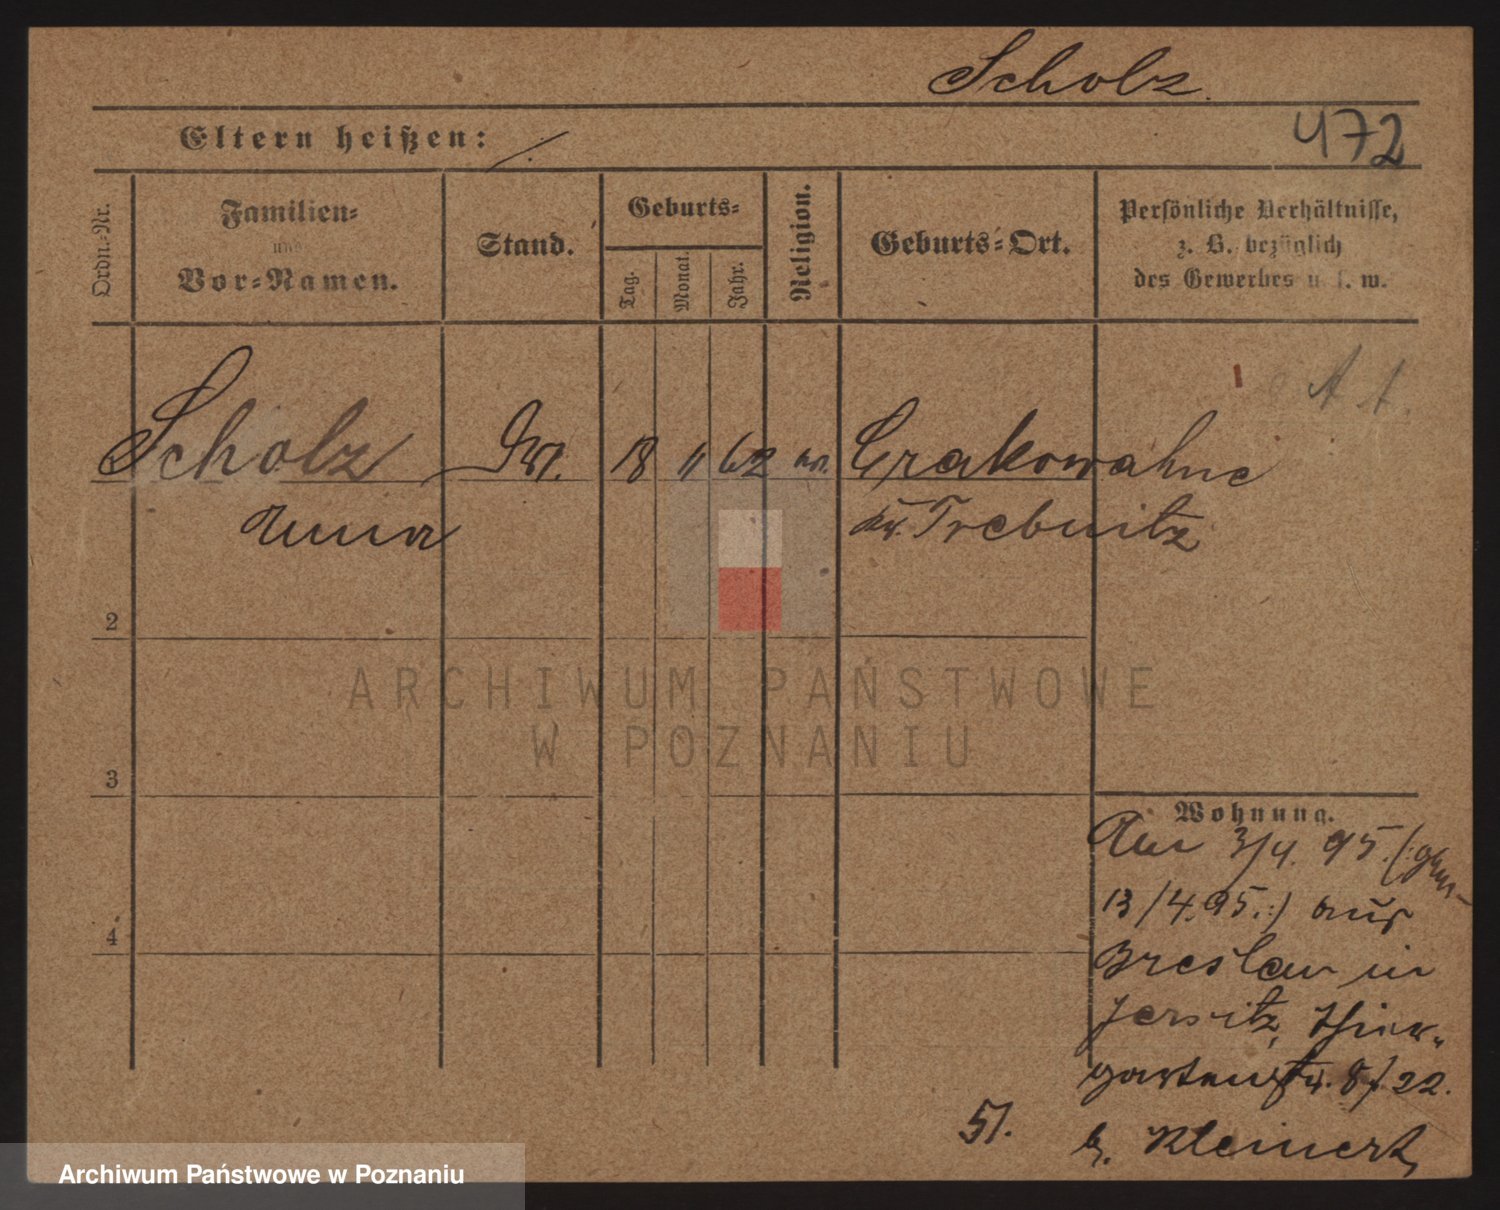 Scholz.
Eltern heißen: /.
472
Ordn.-Nr.
Familien-
und
Vor-Namen.
Stand.
Geburts-
Tag.
Monat.
Jahr.
Religion.
Geburts-Ort.
Persönliche Verhältnisse,
z. B. bezüglich
des Gewerbes u. s. w.
Scholz 18 11 62 Grakowahne
Anna Kr. Trebnitz
2
3
4
Wohnung.
Am 3/4. 95. (:gem.
13/4.95.:) aus
Breslau in
Jersitz, Thier-
gartenstr. 8/ 22.
b. Kleinert
51.
ARCHIWUM PAŃSTWOWE
W POZNANIU
Archiwum Państwowe w Poznaniu